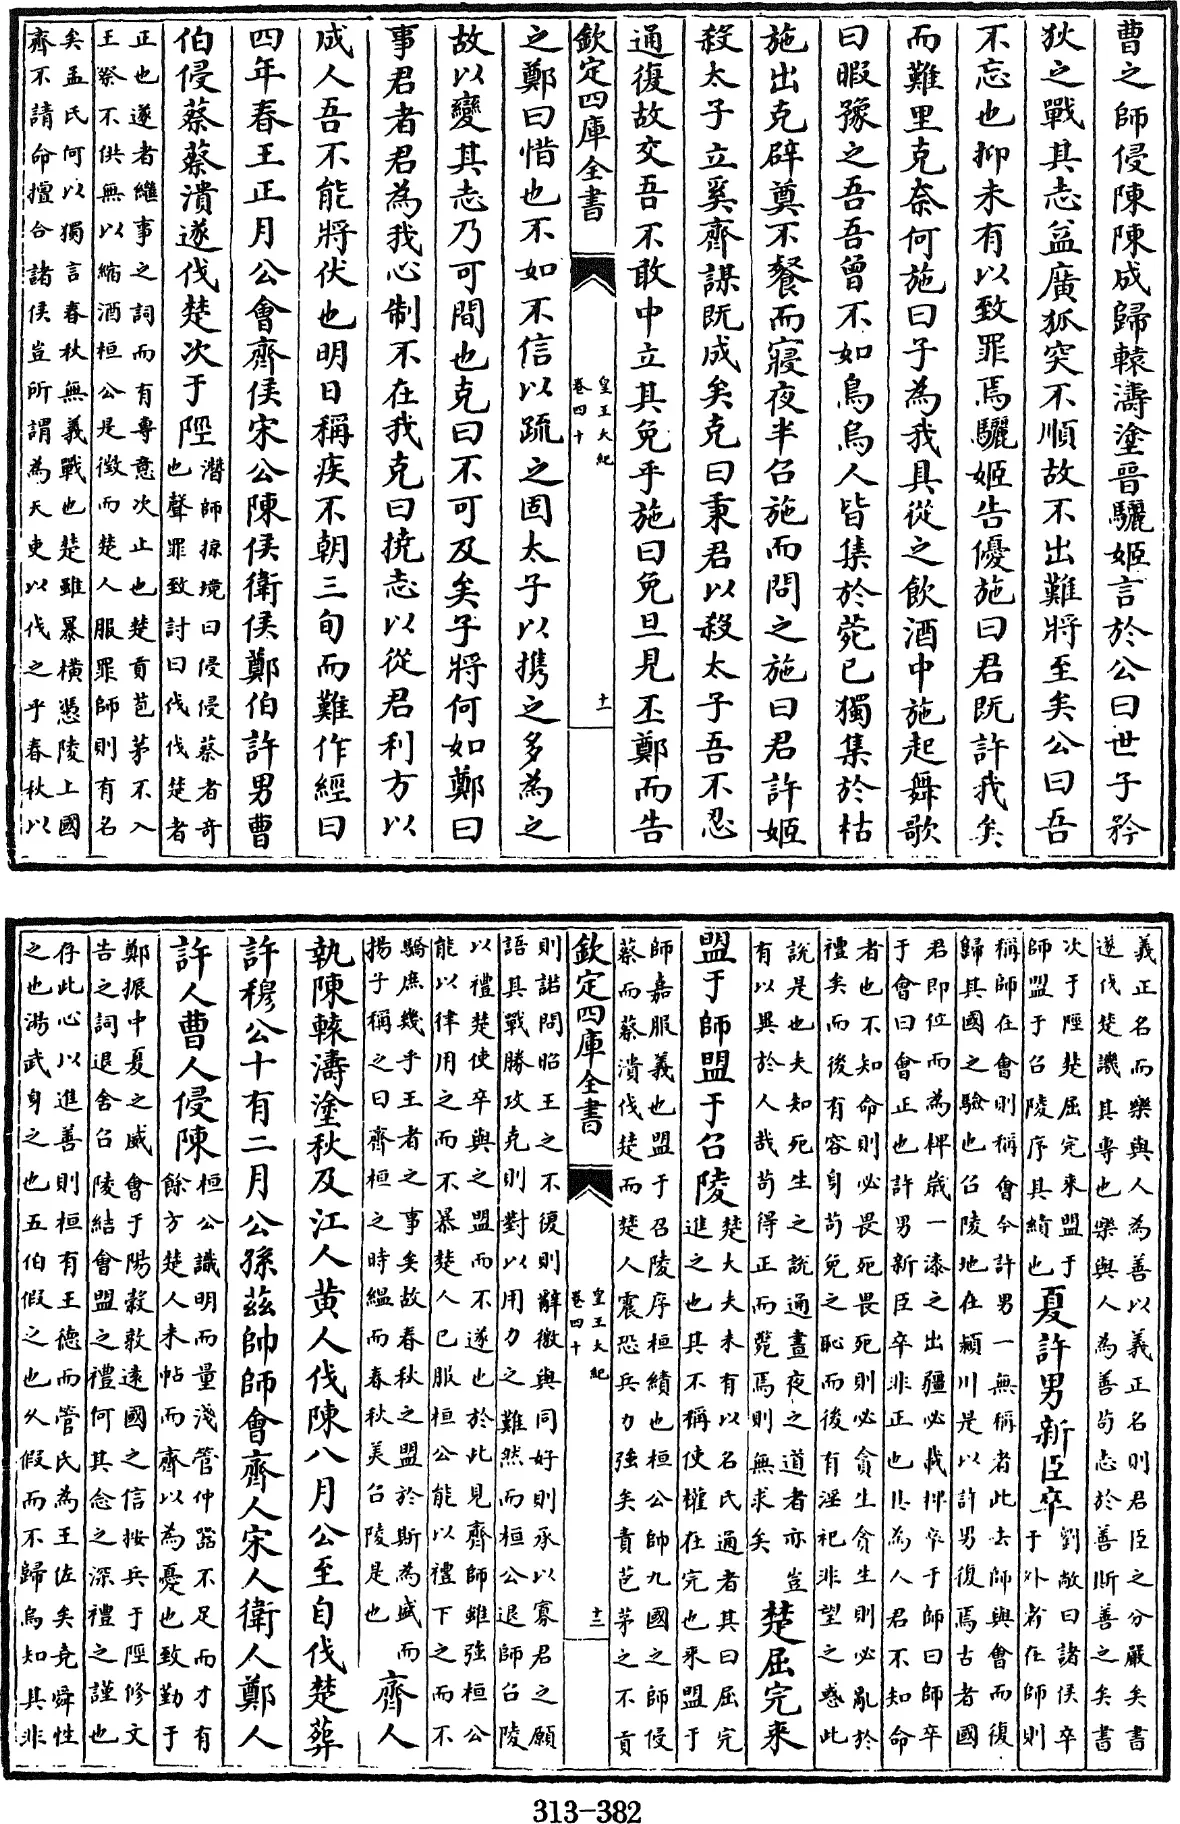 曹之師侵陳陳成歸轅濤塗晉驪姬言於公曰世子矜
狄之戰其志益廣狐突不順故不出難將至矣公曰吾
不忘也抑未有以致罪焉驪姬告優施曰君既許我矣
而難里克奈何施曰子為我具從之飲酒中施起舞歌
曰暇豫之吾吾曾不如鳥烏人皆集於菀已獨集於枯
施出克辟奠不餐而寢夜半召施而問之施曰君許姬
殺太子立奚齊謀既成矣克曰秉君以殺太子吾不忍
通復故交吾不敢中立其免乎施曰免旦見丕鄭而告
欽定四庫全書
皇王大紀
卷四十
十一
之鄭曰惜也不如不信以疏之固太子以攜之多為之
故以變其志乃可間也克曰不可及矣子將何如鄭曰
事君者君為我心制不在我克曰撓志以從君利方以
成人吾不能將伏也明日稱疾不朝三旬而難作經曰
四年春王正月公會齊侯宋公陳侯衛侯鄭伯許男曹
伯侵蔡蔡潰遂伐楚次于陘
潛師掠境曰侵侵蔡者奇
也聲罪致討曰伐伐楚者
正也遂者繼事之詞而有專意次止也楚貢苞茅不入
王祭不供無以縮酒桓公是徵而楚人服罪師則有名
矣孟氏何以獨言春秋無義戰也楚雖暴橫憑陵上國
齊不請命擅合諸侯豈所謂為天吏以伐之乎春秋以
義正名而樂與人為善以義正名則君臣之分嚴矣書
遂伐楚譏其專也樂與人為善苟志於善斯善之矣書
次于陘楚屈完來盟于
師盟于召陵序其績也
夏許男新臣卒
劉敞曰諸侯卒
于外者在師則
稱師在會則稱會今許男一無稱者此去師與會而復
歸其國之驗也召陵地在潁川是以許男復焉古者國
君即位而為椑歲一漆之出疆必載椑卒于師曰師卒
于會曰會正也許男新臣卒非正也凡為人君不知命
者也不知命則必畏死畏死則必貪生貪生則必亂於
禮矣而後有容身苟免之恥而後有淫祀非望之惑此
說是也夫知死生之說通晝夜之道者亦豈
有以異於人哉苟得正而斃焉則無求矣
楚屈完來
盟于師盟于召陵
楚大夫未有以名氏通者其曰屈完
進之也其不稱使權在完也來盟于
師嘉服義也盟于召陵序桓績也桓公帥九國之師侵
蔡而蔡潰伐楚而楚人震恐兵力強矣責苞茅之不貢
欽定四庫全書
皇王大紀
卷四十
十二
則諾問昭王之不復則辭徵與同好則承以寡君之願
語其戰勝攻克則對以用力之難然而桓公退師召陵
以禮楚使卒與之盟而不遂也於此見齊師雖強桓公
能以律用之而不暴楚人已服桓公能以禮下之而不
驕庶幾乎王者之事矣故春秋之盟於斯為盛而
揚子稱之曰齊桓之時縕而春秋美召陵是也
齊人
執陳轅濤塗秋及江人黃人伐陳八月公至自伐楚葬
許穆公十有二月公孫茲帥師會齊人宋人衛人鄭人
許人曹人侵陳
桓公識明而量淺管仲器不足而才有
餘方楚人未帖而齊以為憂也致勤于
鄭振中夏之威會于陽穀敦遠國之信按兵于陘修文
告之詞退舍召陵結會盟之禮何其念之深禮之謹也
存此心以進善則桓有王德而管氏為王佐矣堯舜性
之也湯武身之也五伯假之也久假而不歸烏知其非
313-382